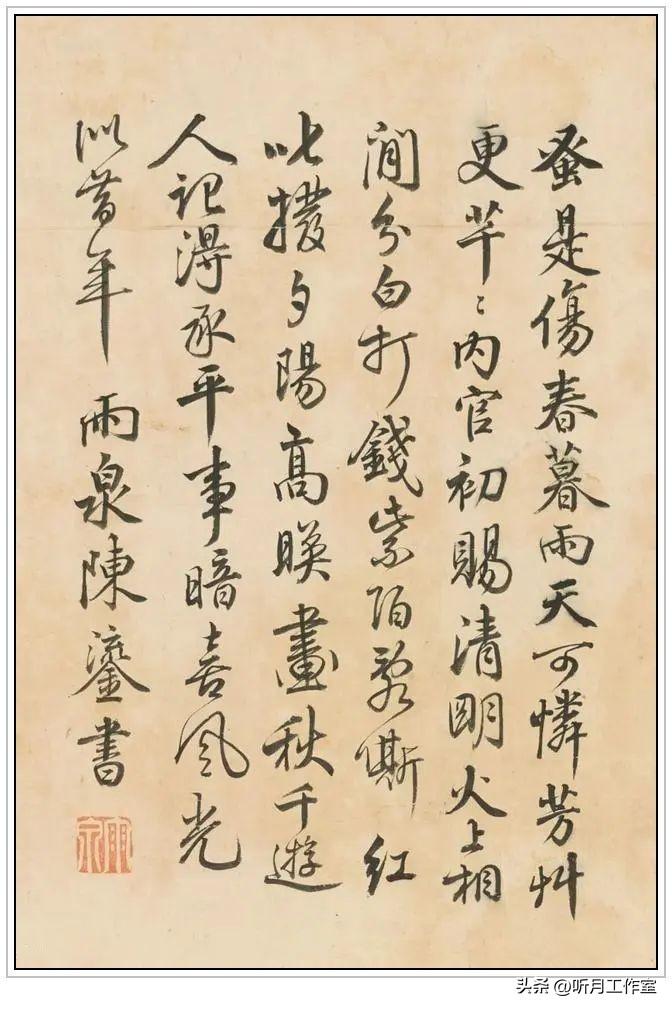 蚤是傷春暮雨天可憐芳艸
更芊〻内官初賜清明火上相
閒分白打錢紫陌亂嘶紅
叱撥夕陽高暎畫秋千遊
人記得承平事暗喜風光
似昔年 雨泉陳鎏書
雨泉
头条 @听月工作室